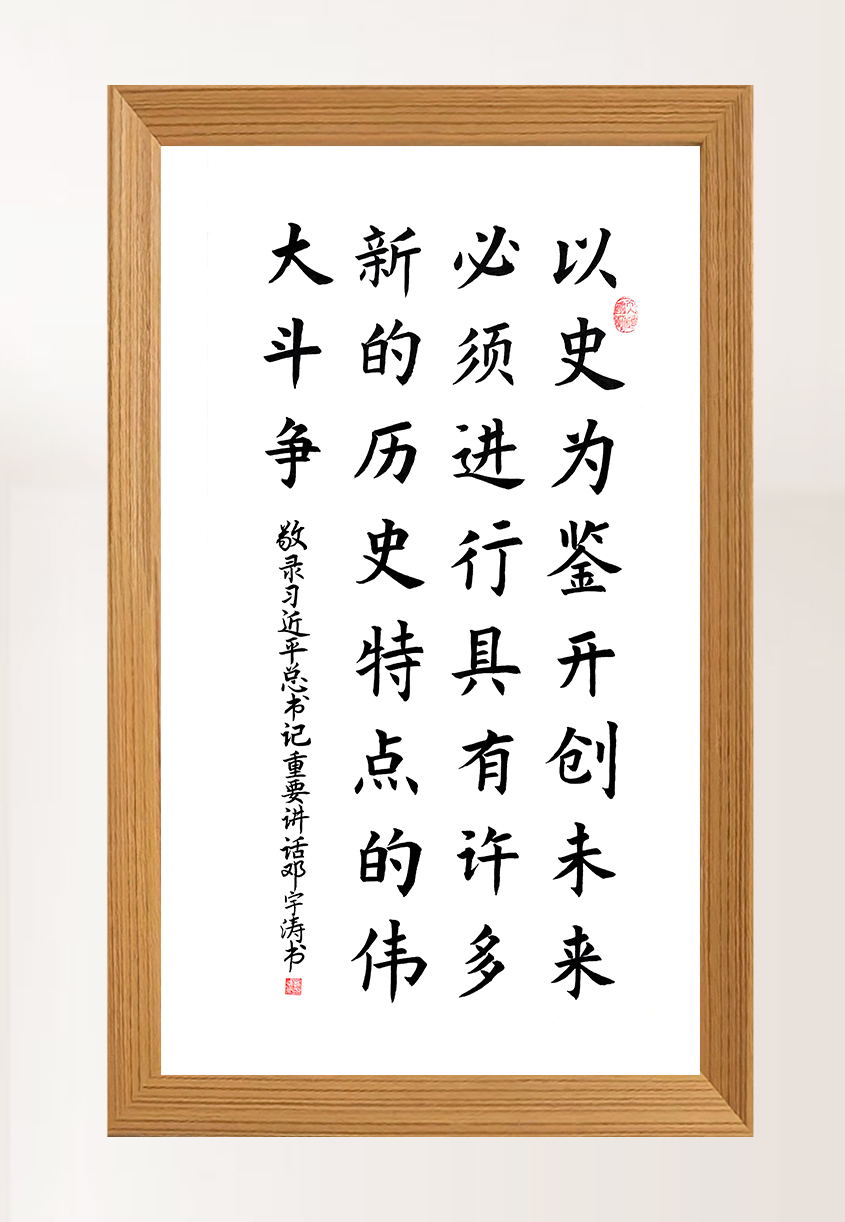 以史为鉴开创未来
必须进行具有许多
新的历史特点的伟
大斗争
敬录习近平总书记重要讲话邓宇涛书